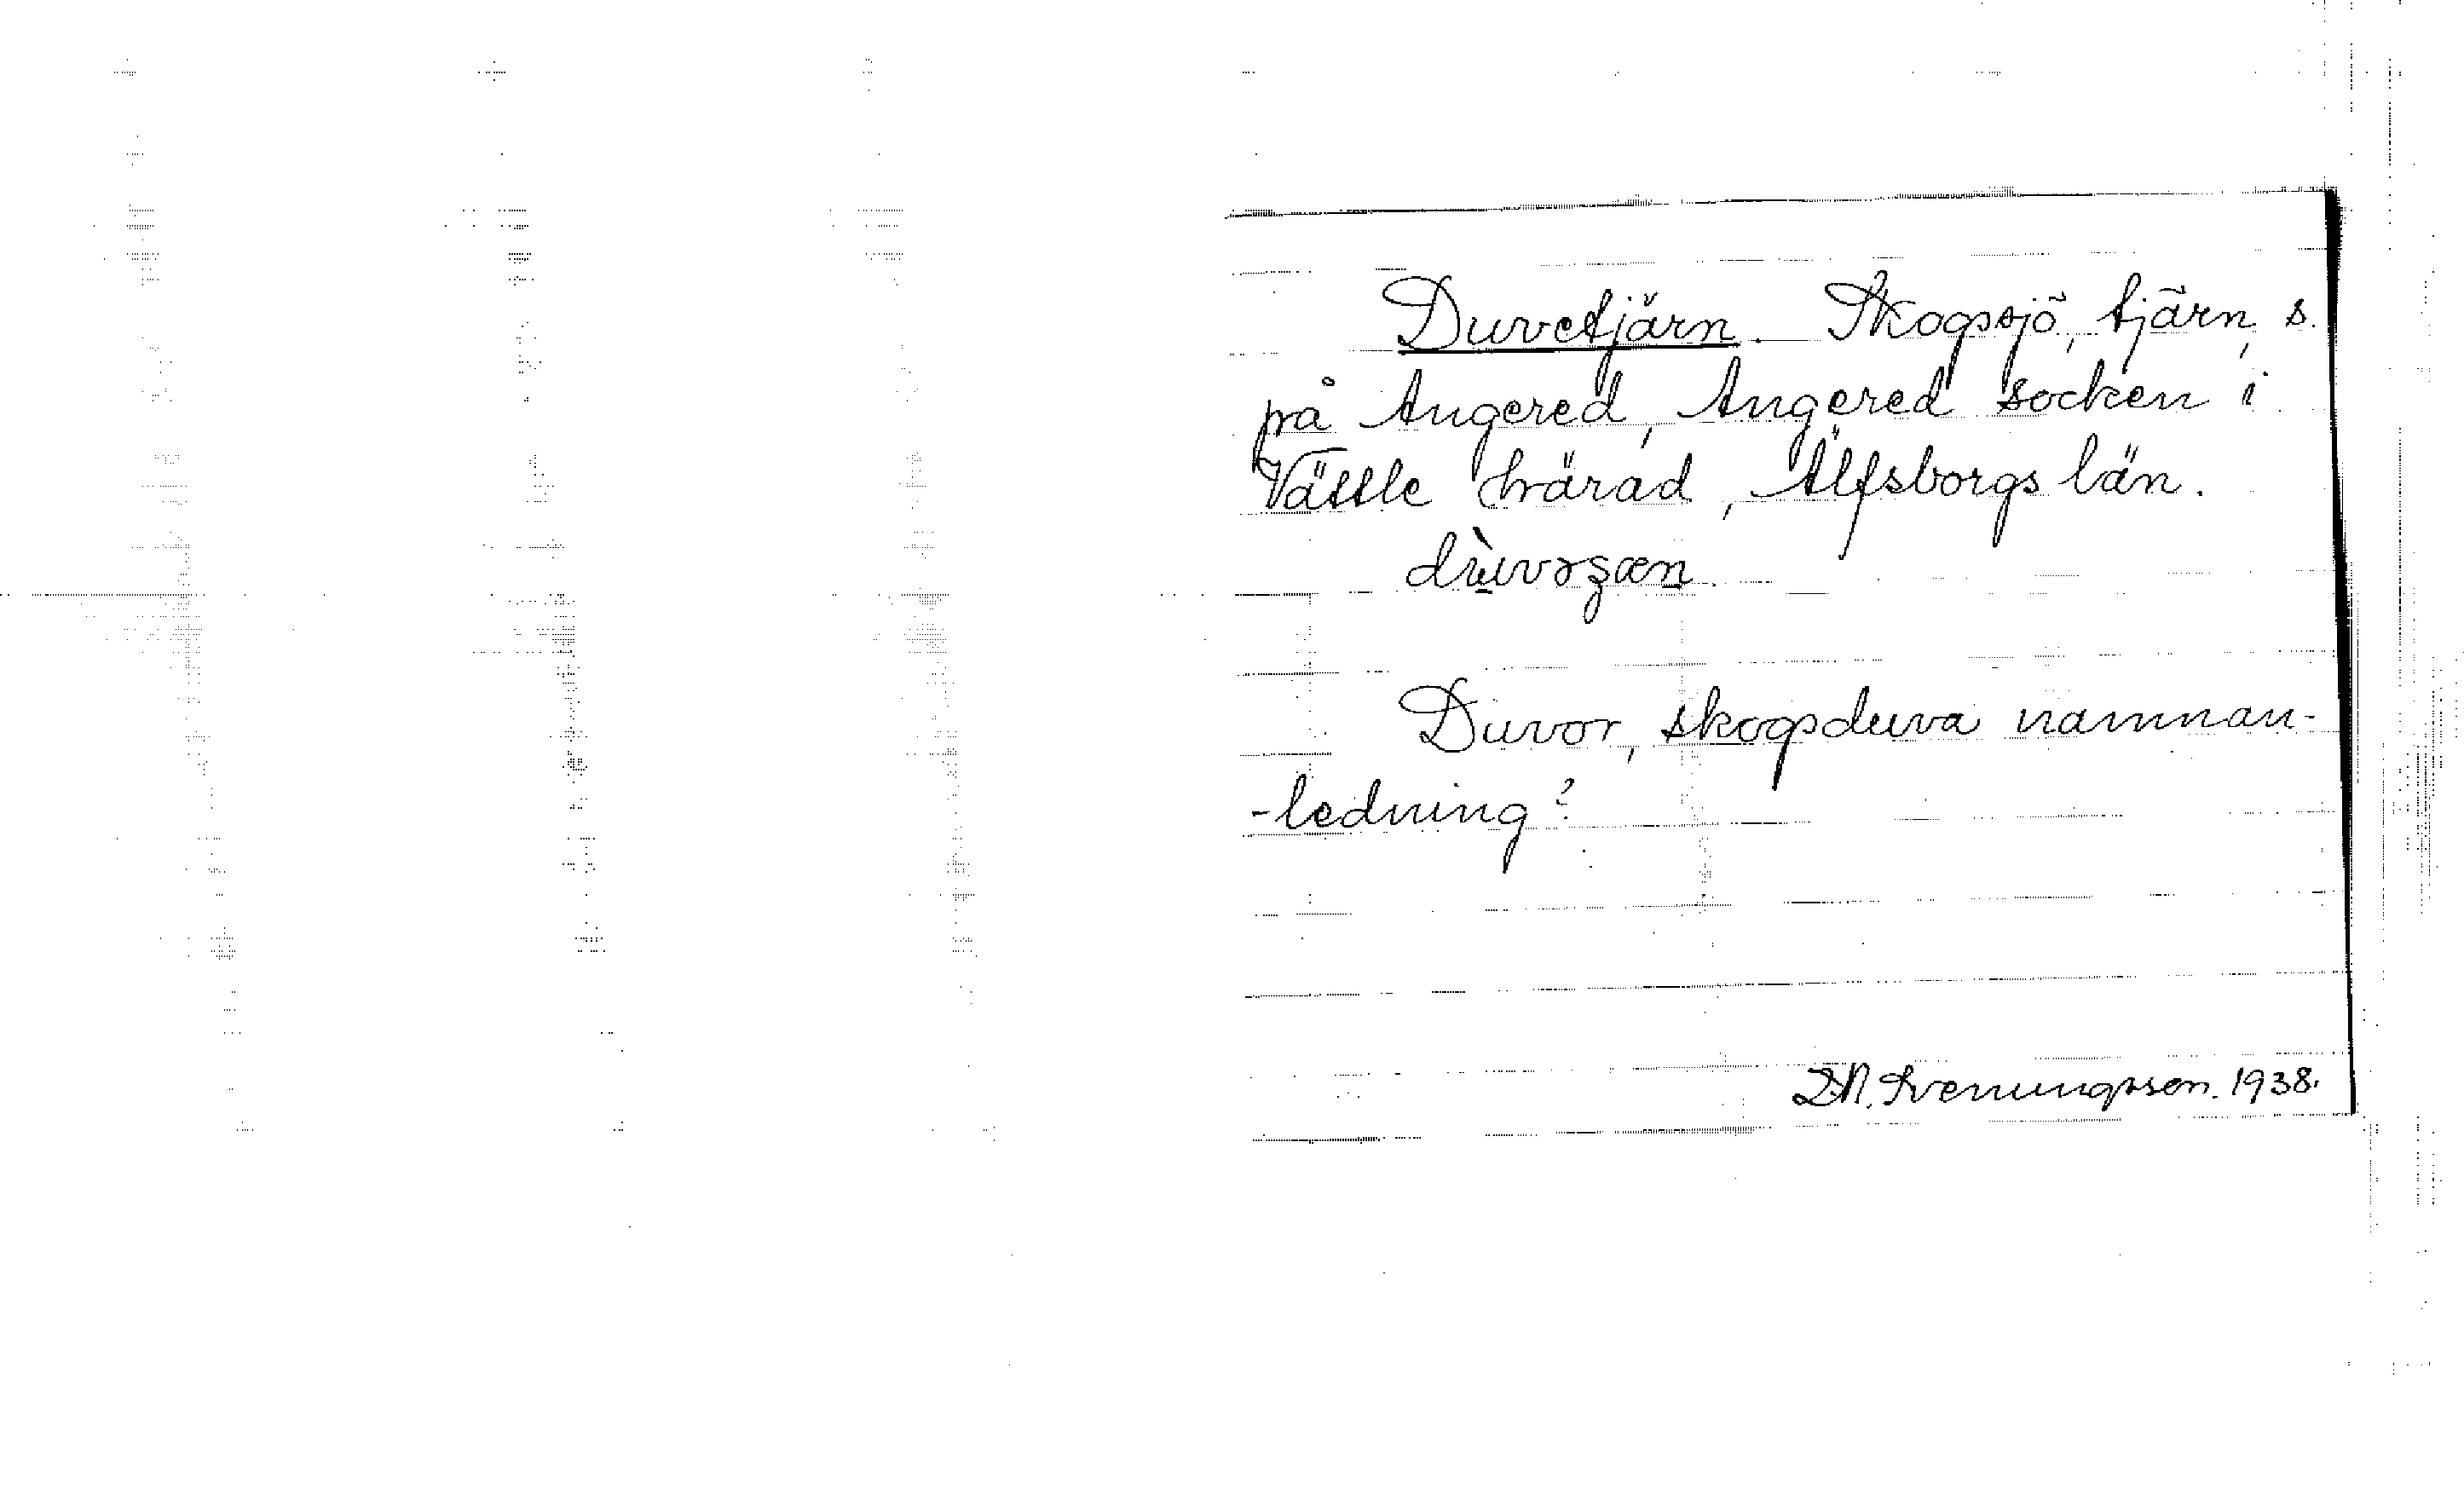 Duvetjärn. Skogssjö, tjärn, s.
på Angered, Angered socken i
Vättle härad, Älfsborgs län.
dùvəʂæn.
Duvor, skogsduva namnan-
-ledning?
1938.